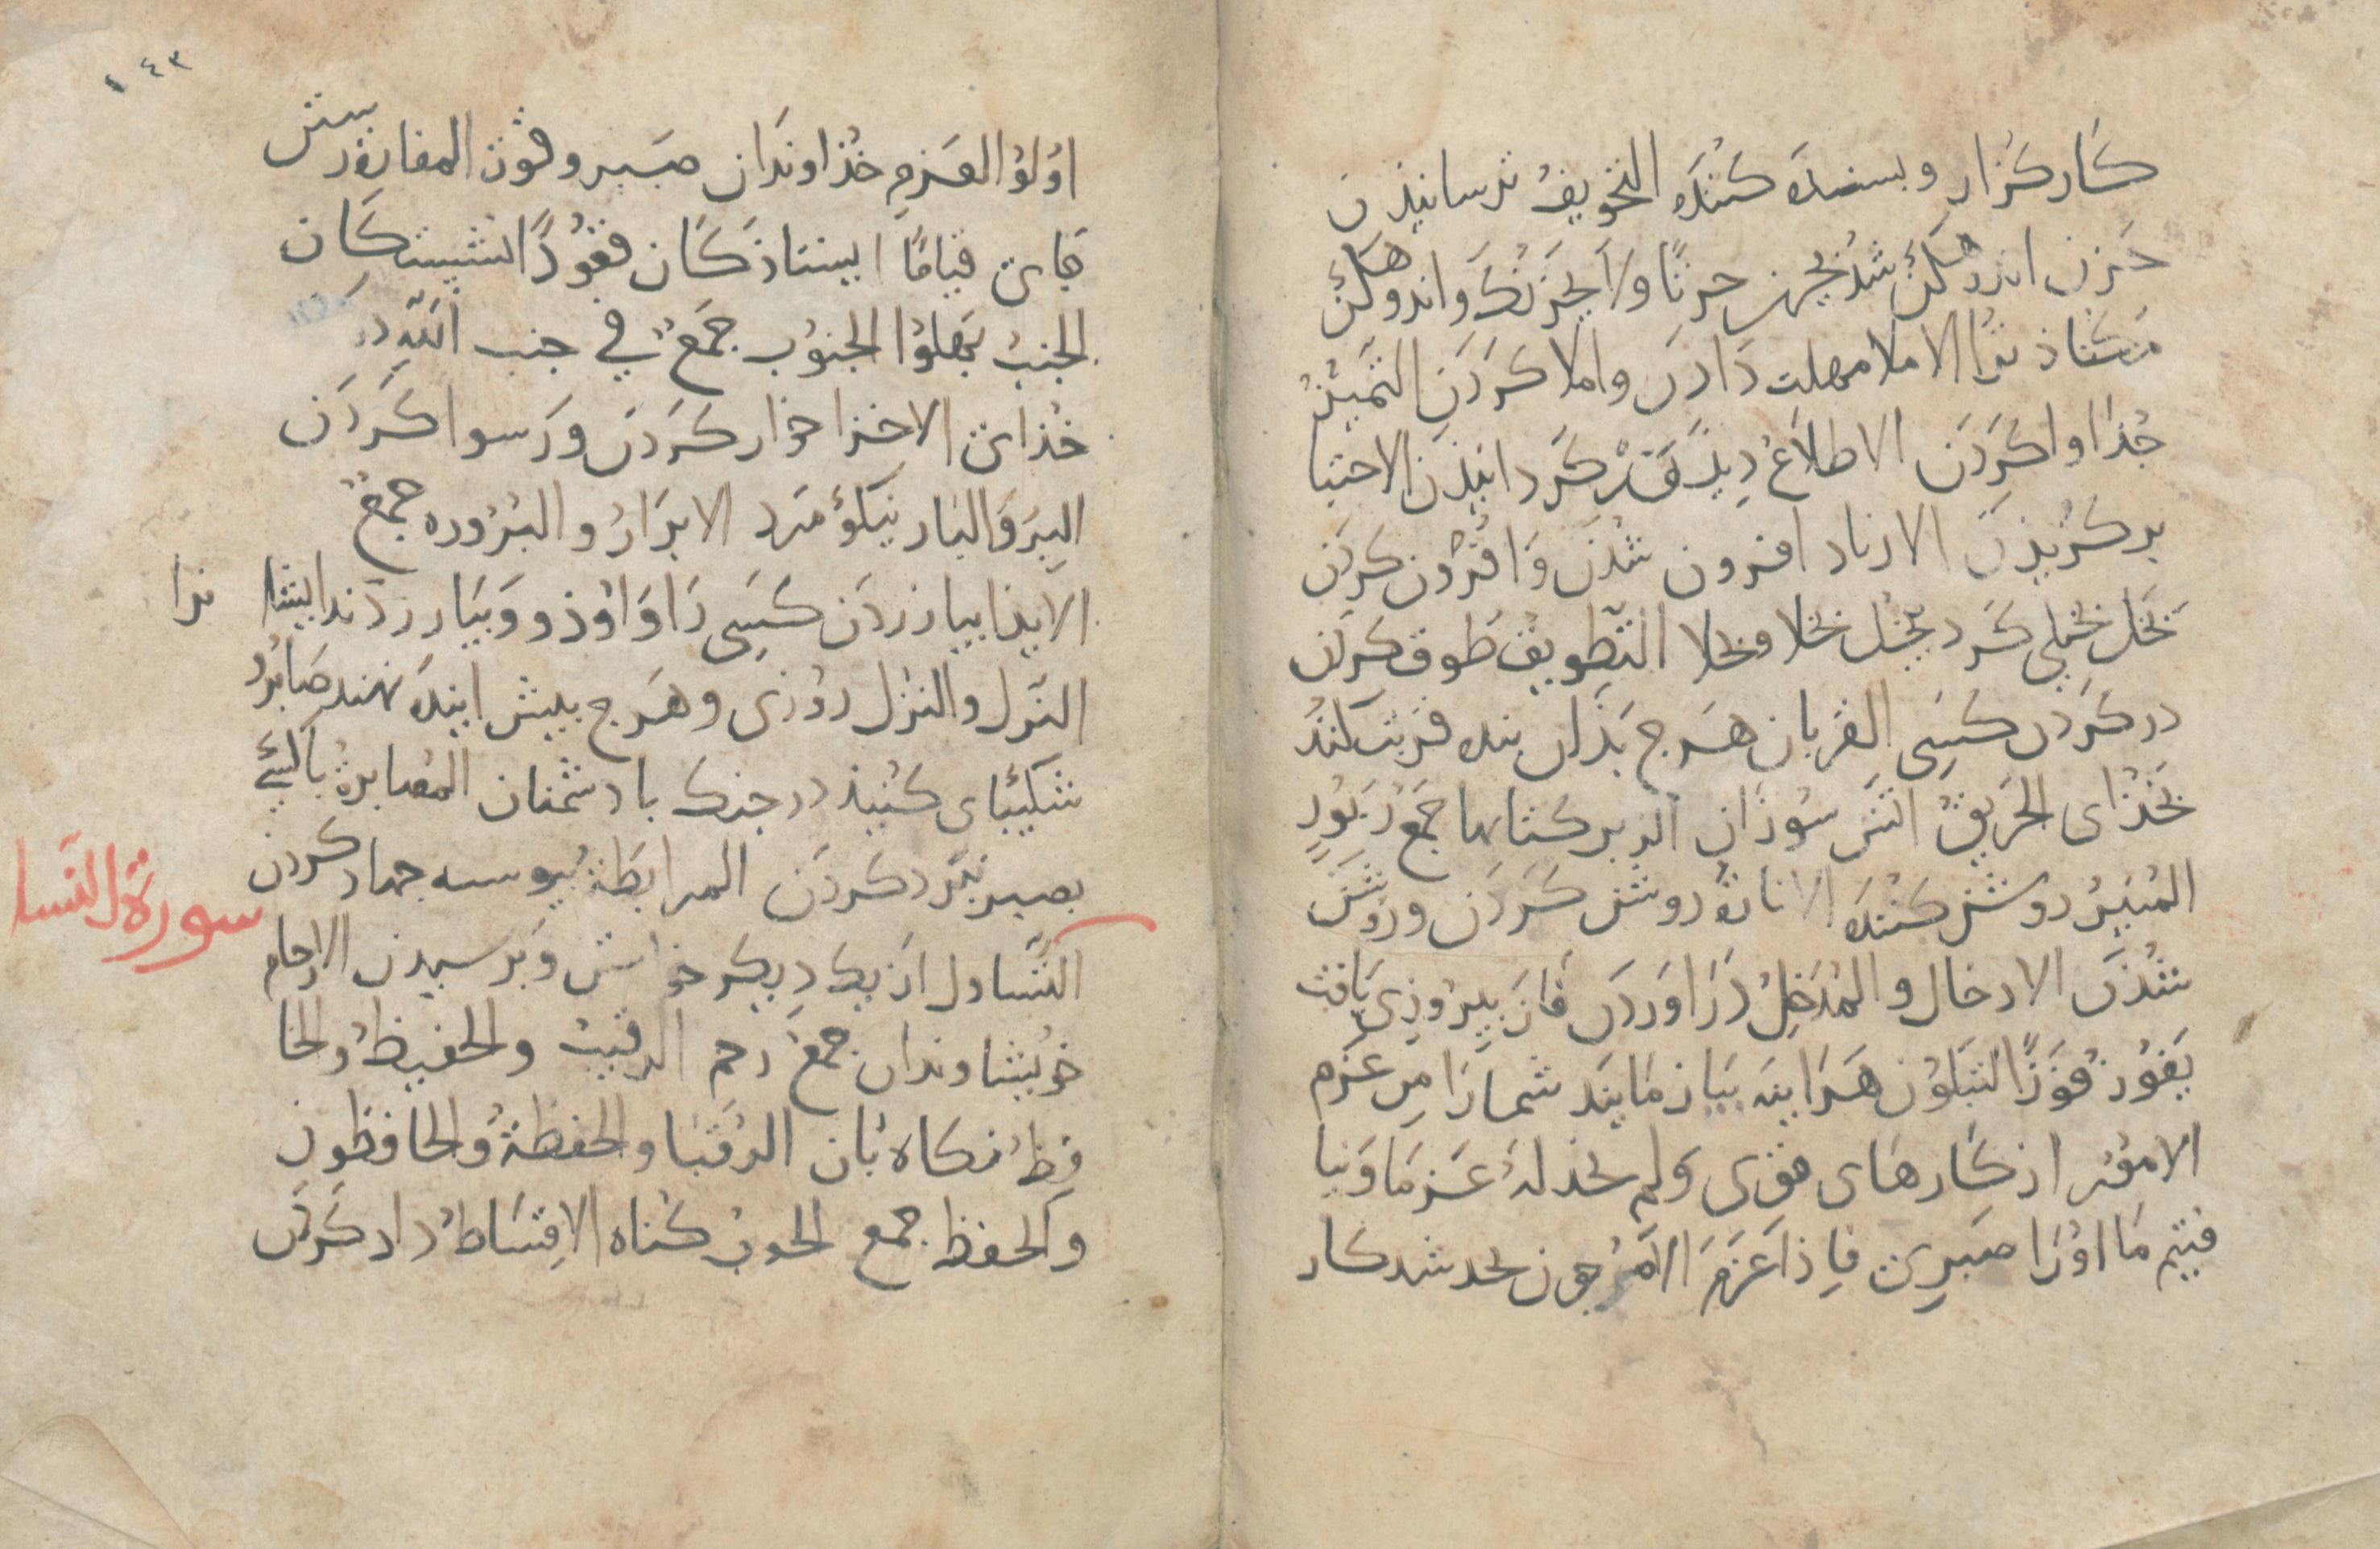 كَار كَزار و بسنده كننده التخويفُ ترسانيذن
حزن اندوهكن شد يحزن حزنًا ولا يحزنك و اندوهكن
مكناذ ترا الاملا مهلت دادن و املا كردن التمييز
جُذا واكردن الاطلاعُ ديذه‌ور كردانيذن الاحتبا
بركزيذن الازدياد افزون شدن و افزون كردن
بخل بخيلي كرد يبخل بخلا و بخلا التطويق طوق كردن
در كردن كسي القربان هرج بذان بنده قربت كند
بخذاى الحريق اتش سوزان الزبر كتابها جمع زبور
المنير روشن كننده الانارة روشن كردن و روشن
شذن الادخال و المدخل دراوردن فاز پيروزى يافت
يفوز فوزًا لتبلون هراينه بيازمايند شمارا من عزم
الامور از كارهاى قوى ولم نجد له عزما و نيا
فتيم ما اورا صبرى فاذا عزم الامر چون بجد شد كار
١٤٣
اولوا العزم خذاوندان صبر و قوت المفازة رستن
جاى قيامًا ايستاذكان قعودًا نشستكان
الجنب پهلوا الجنوب جمع في جنب الله در
خذاى الاخزا خوار كردن و رسوا كردن
البر و البار نيكو مرد الابرار و البررة جمع
الايذا بيازردن كسى را و اوذوا و بيازردند ايشا نرا
النزل و النزل روزى و هرج پيش اينده نهند صابروا
شكيباى كنيذ در جنك با دشمنان المصابرة با كسى
بصبر نبرد كردن المرابطة پيوسته جهاد كردن
سورة النسا
التساول از يك ديكر خواستن و پرسيدن الارحام
خويشاوندان جمع رحم الرقيب و الحفيظ و الحا
فظ نكاه‌بان الرقبا و الحفظة و الحافظون
و الحفظ جمع الحوب كناه الاقساط داد كردن